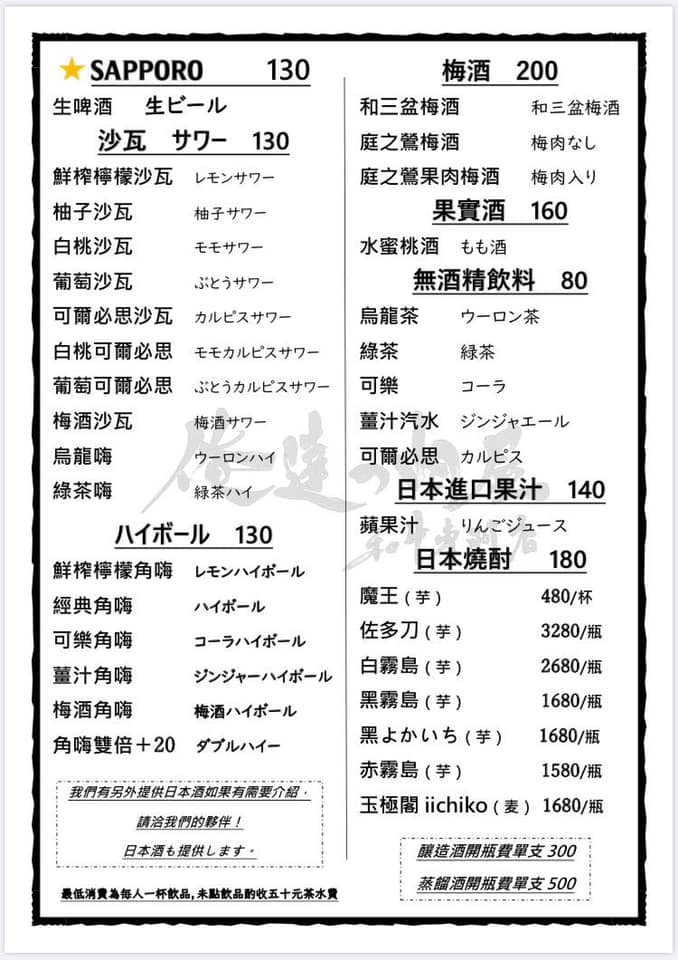 SAPPORO 130
生啤酒 生ビール
沙瓦 サワー 130
鮮榨檸檬沙瓦 レモンサワー
柚子沙瓦 柚子サワー
白桃沙瓦 モモサワー
葡萄沙瓦 ぶとうサワー
可爾必思沙瓦 カルピスサワー
白桃可爾必思 モモカルピスサワー
葡萄可爾必思 ぶとうカルピスサワー
梅酒沙瓦 梅酒サワー
烏龍嗨 ウーロンハイ
綠茶嗨 緑茶ハイ
ハイボール 130
鮮榨檸檬角嗨 レモンハイボール
經典角嗨 ハイボール
可樂角嗨 コーラハイボール
薑汁角嗨 ジンジャーハイボール
梅酒角嗨 梅酒ハイボール
角嗨雙倍+20 ダブルハイー
我們有另外提供日本酒如果有需要介紹，
請洽我們的夥伴！
日本酒も提供します。
最低消費為每人一杯飲品,未點飲品酌收五十元茶水費
梅酒 200
和三盆梅酒 和三盆梅酒
庭之鶯梅酒 梅肉なし
庭之鶯果肉梅酒 梅肉入り
果實酒 160
水蜜桃酒 もも酒
無酒精飲料 80
烏龍茶 ウーロン茶
綠茶 緑茶
可樂 コーラ
薑汁汽水 ジンジャエール
可爾必思 カルピス
日本進口果汁 140
蘋果汁 りんごジュース
日本燒酎 180
魔王 ( 芋 ) 480/杯
佐多刀 ( 芋 ) 3280/瓶
白霧島 ( 芋 ) 2680/瓶
黑霧島 ( 芋 ) 1680/瓶
黑よかいち ( 芋 ) 1680/瓶
赤霧島 ( 芋 ) 1580/瓶
玉極閣 iichiko ( 麦 ) 1680/瓶
釀造酒開瓶費單支 300
蒸餾酒開瓶費單支 500